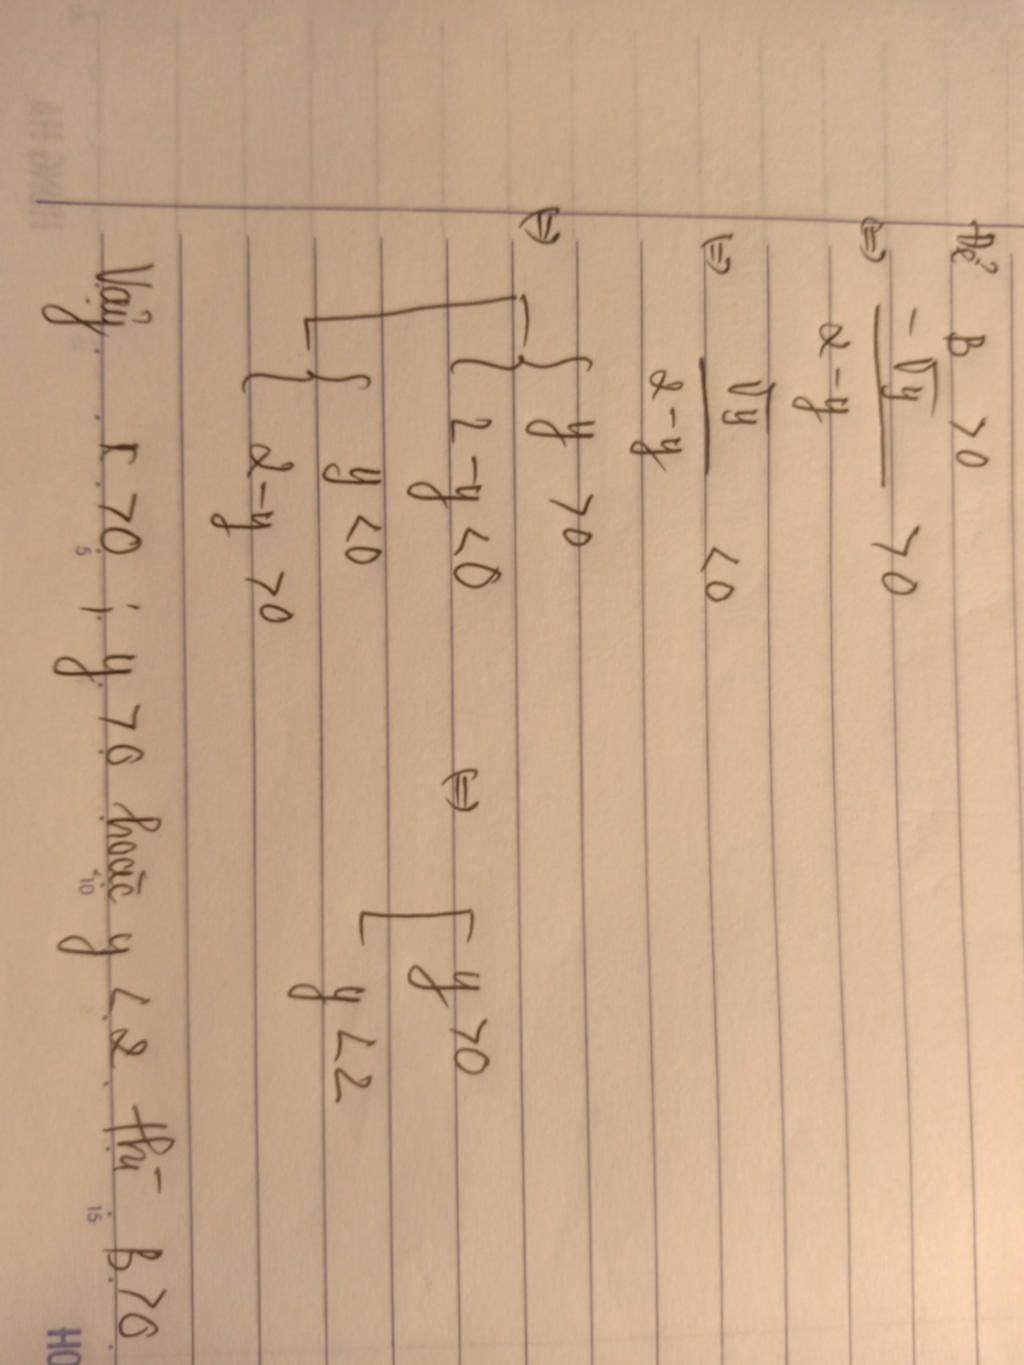 Để B > 0
<=> -√y / (2 - y) > 0
<=> √y / (2 - y) < 0
<=> [ { y > 0
2 - y < 0
{ y < 0
2 - y > 0
<=> [ y > 0
y < 2
Vậy x > 0 ; y > 0 hoặc y < 2 thì B > 0
5
10
15
HO